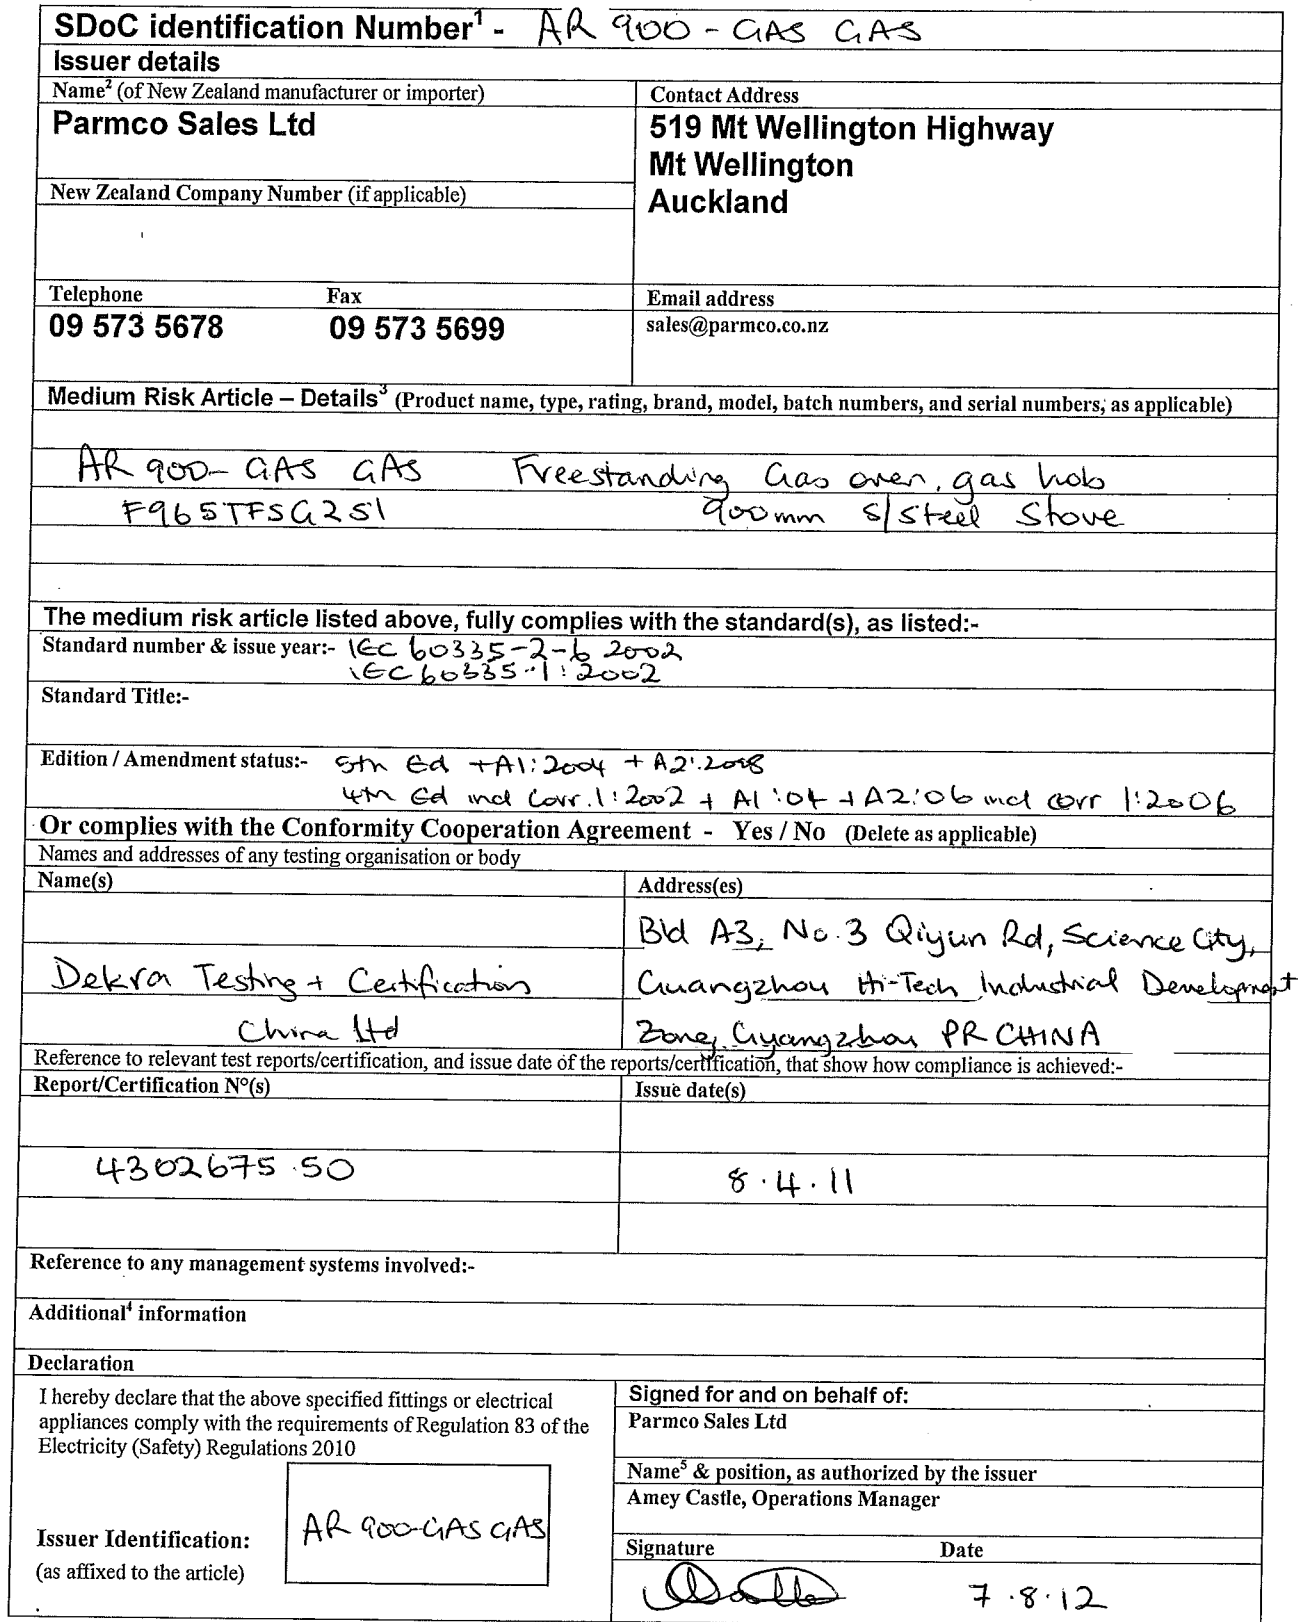 SDoC identification Number¹ - AR 900 - GAS GAS
Issuer details
Name² (of New Zealand manufacturer or importer)
Parmco Sales Ltd
Contact Address
519 Mt Wellington Highway
Mt Wellington
Auckland
New Zealand Company Number (if applicable)
Telephone Fax
09 573 5678 09 573 5699
Email address
sales@parmco.co.nz
Medium Risk Article – Details³ (Product name, type, rating, brand, model, batch numbers, and serial numbers, as applicable)
AR 900- GAS GAS Freestanding Gas oven, gas hob
F965TFSG2S1 900mm S/Steel Stove
The medium risk article listed above, fully complies with the standard(s), as listed:-
Standard number & issue year:- IEC 60335-2-6 2002
IEC 60335-1:2002
Standard Title:-
Edition / Amendment status:- 5th Ed +A1:2004 + A2:2008
4th Ed incl Corr.1:2002 + A1:04 + A2:06 incl corr 1:2006
Or complies with the Conformity Cooperation Agreement - Yes / No (Delete as applicable)
Names and addresses of any testing organisation or body
Name(s)
Dekra Testing + Certification
China Ltd
Address(es)
Bld A3, No.3 Qiyun Rd, Science City,
Guangzhou Hi-Tech Industrial Development
Zone, Guangzhou PR CHINA
Reference to relevant test reports/certification, and issue date of the reports/certification, that show how compliance is achieved:-
Report/Certification N°(s) Issue date(s)
4302675.50 8.4.11
Reference to any management systems involved:-
Additional⁴ information
Declaration
I hereby declare that the above specified fittings or electrical
appliances comply with the requirements of Regulation 83 of the
Electricity (Safety) Regulations 2010
Issuer Identification:
(as affixed to the article)
AR 900-GAS GAS
Signed for and on behalf of:
Parmco Sales Ltd
Name⁵ & position, as authorized by the issuer
Amey Castle, Operations Manager
Signature Date
7.8.12